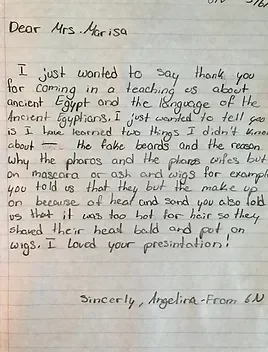 6N
Dear Mrs. Marisa
I just wanted to say thank you
for coming in a teaching us about
ancient Egypt and the language of the
Ancient Egyptians. I just wanted to tell you
is I have learned two things I didn't know
about — the fake beards and the reason
why the pharos and the pharos wifes but
on mascara or ash and wigs for example
you told us that they but the make up
on because of heat and sand you also told
us that it was too hot for hair so they
shaved their head bald and put on
wigs. I loved your presintation!
Sincerly, Angelina-From 6N